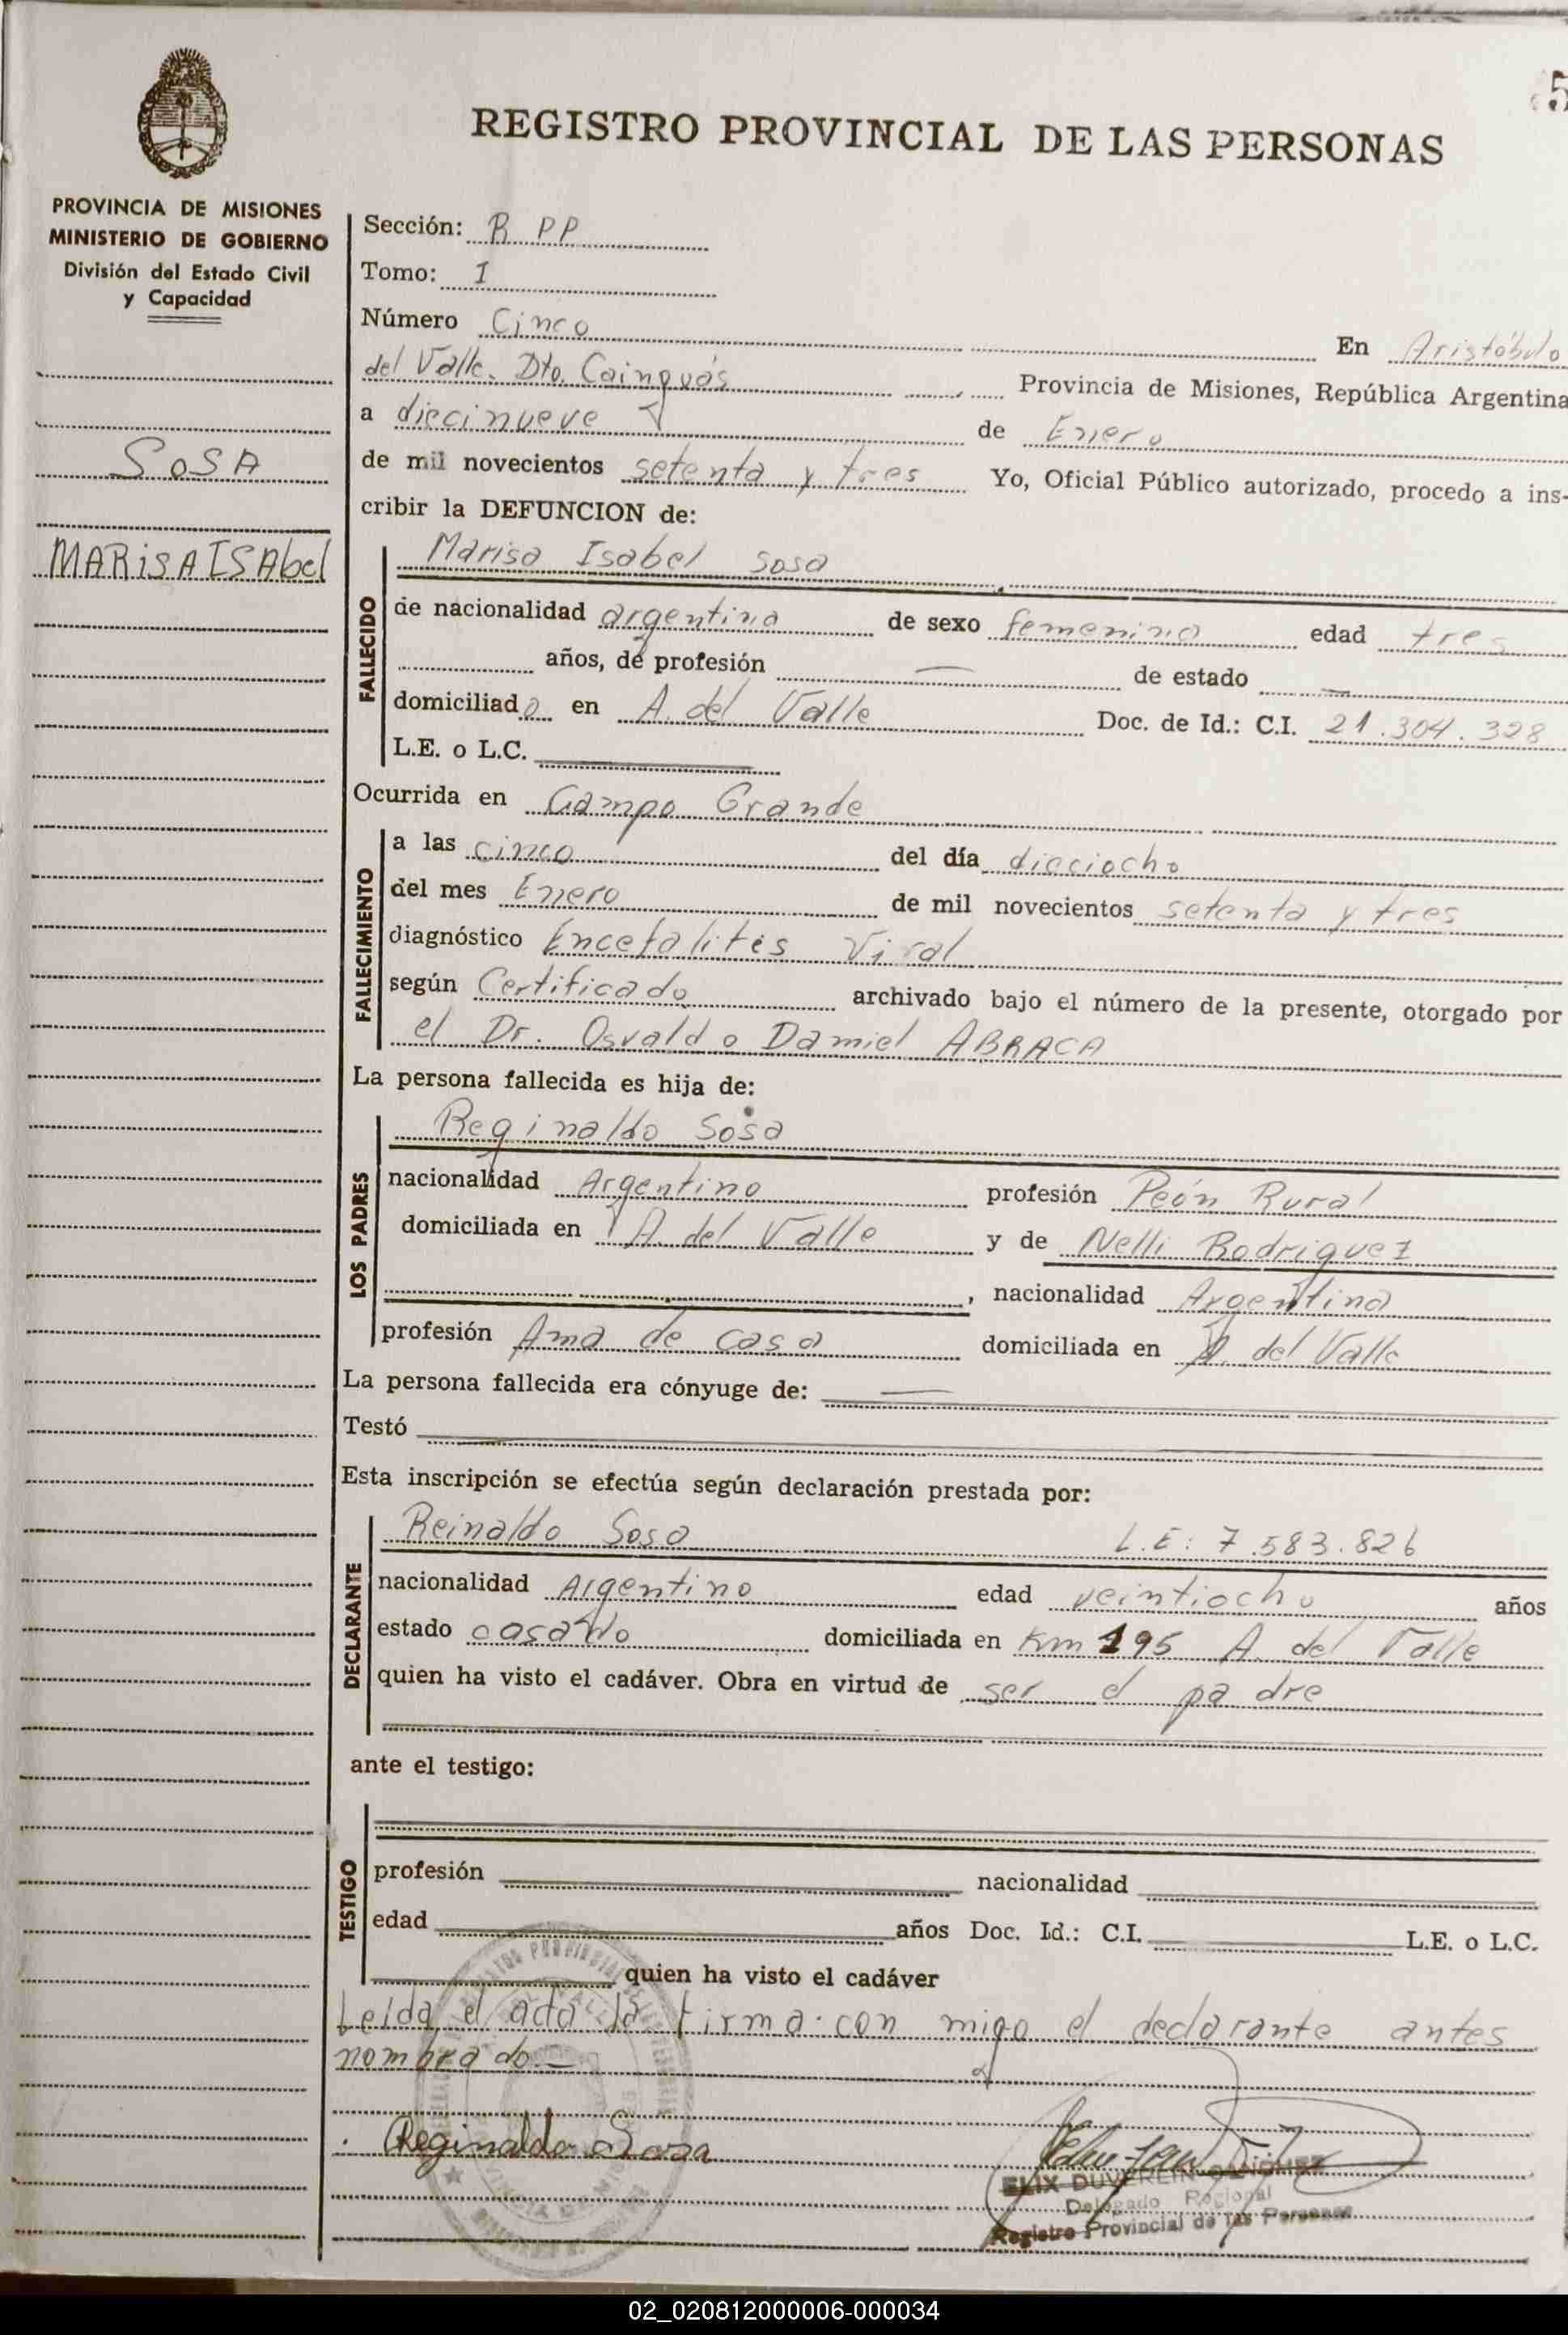 5
REGISTRO PROVINCIAL DE LAS PERSONAS
PROVINCIA DE MISIONES
MINISTERIO DE GOBIERNO
División del Estado Civil
y Capacidad
SOSA
MARiSA ISAbel
Sección: R PP
Tomo: I
Número Cinco En Aristóbulo
del Valle. Dto. Cainguás Provincia de Misiones, República Argentina
a diecinueve de Enero
de mil novecientos setenta y tres Yo, Oficial Público autorizado, procedo a ins-
cribir la DEFUNCION de:
FALLECIDO
Marisa Isabel Sosa
de nacionalidad argentina de sexo femenino edad tres
años, de profesión — de estado —
domiciliado en A. del Valle Doc. de Id.: C.I. 21.304.328
L.E. o L.C.
Ocurrida en Campo Grande
FALLECIMIENTO
a las cinco del día dieciocho
del mes Enero de mil novecientos setenta y tres
diagnóstico Encefalites Viral
según Certificado archivado bajo el número de la presente, otorgado por
el Dr. Osvaldo Damiel ABRACA
La persona fallecida es hija de:
LOS PADRES
Reginaldo Sosa
nacionalidad Argentino profesión Peón Rural
domiciliada en A. del Valle y de Nelli Rodriguez
, nacionalidad Argentina
profesión Ama de casa domiciliada en A. del Valle
La persona fallecida era cónyuge de: —
Testó
Esta inscripción se efectúa según declaración prestada por:
DECLARANTE
Reinaldo Sosa L.E: 7.583.826
nacionalidad Argentino edad veintiocho años
estado casado domiciliada en Km 195 A. del Valle
quien ha visto el cadáver. Obra en virtud de ser el padre
ante el testigo:
TESTIGO
profesión nacionalidad
edad años Doc. Id.: C.I. L.E. o L.C.
quien ha visto el cadáver
Leida el acta la firma con migo el declarante antes
nombrado.—
Reginaldo Sosa
Delegado Regional
Registro Provincial de las Personas
02_020812000006-000034